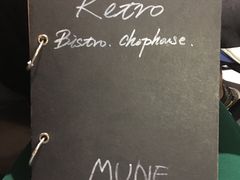 Retro
Bistro. chophouse.
MUNE